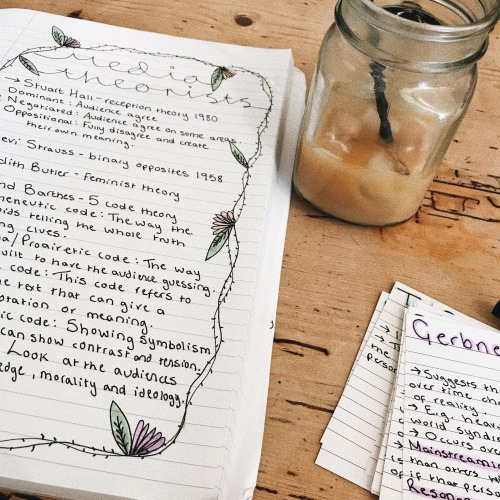 Media
theorists
→ Stuart Hall - reception theory 1980
Dominant: Audience agree
Negotiated: Audience agree on some areas
Oppositional: Fully disagree and create
their own meaning.
evi Strauss - binary opposites 1958
dith Butler - feminist theory
nd Barthes - 5 code theory
eneutic code: The way the
ids telling the whole truth
ng clues.
a/Proairetic code: The way
uilt to have the audience guessing.
code: This code refers to
he text that can give a
otation or meaning.
ic code: Showing symbolism
can show contrast and tension.
Look at the audiences
edge, morality and ideology.
→
the
perso
Gerbne
→ Suggests th
over time cha
of reality.
→ E.g. heav
world syndr
→ Occurs over
Mainstreami
is than others w
of if that perso
Resona